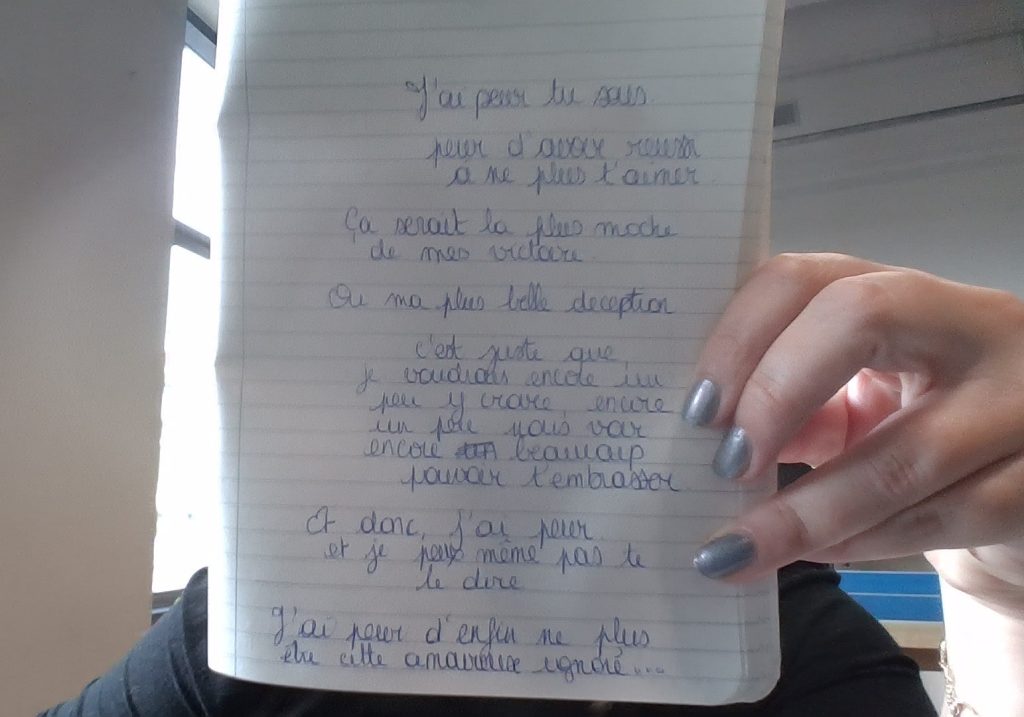 J'ai peur tu sais
peur d'avoir reussi
a ne plus t'aimer
Ça serait la plus moche
de mes victoire
Ou ma plus belle deception
c'est juste que
je voudrais encore un
peu y croire, encore
un peu nous voir
encore beaucoup
pouvoir t'embrasser
Et donc, j'ai peur
et je peux même pas te
le dire
J'ai peur d'enfin ne plus
être cette amoureux ignoré...